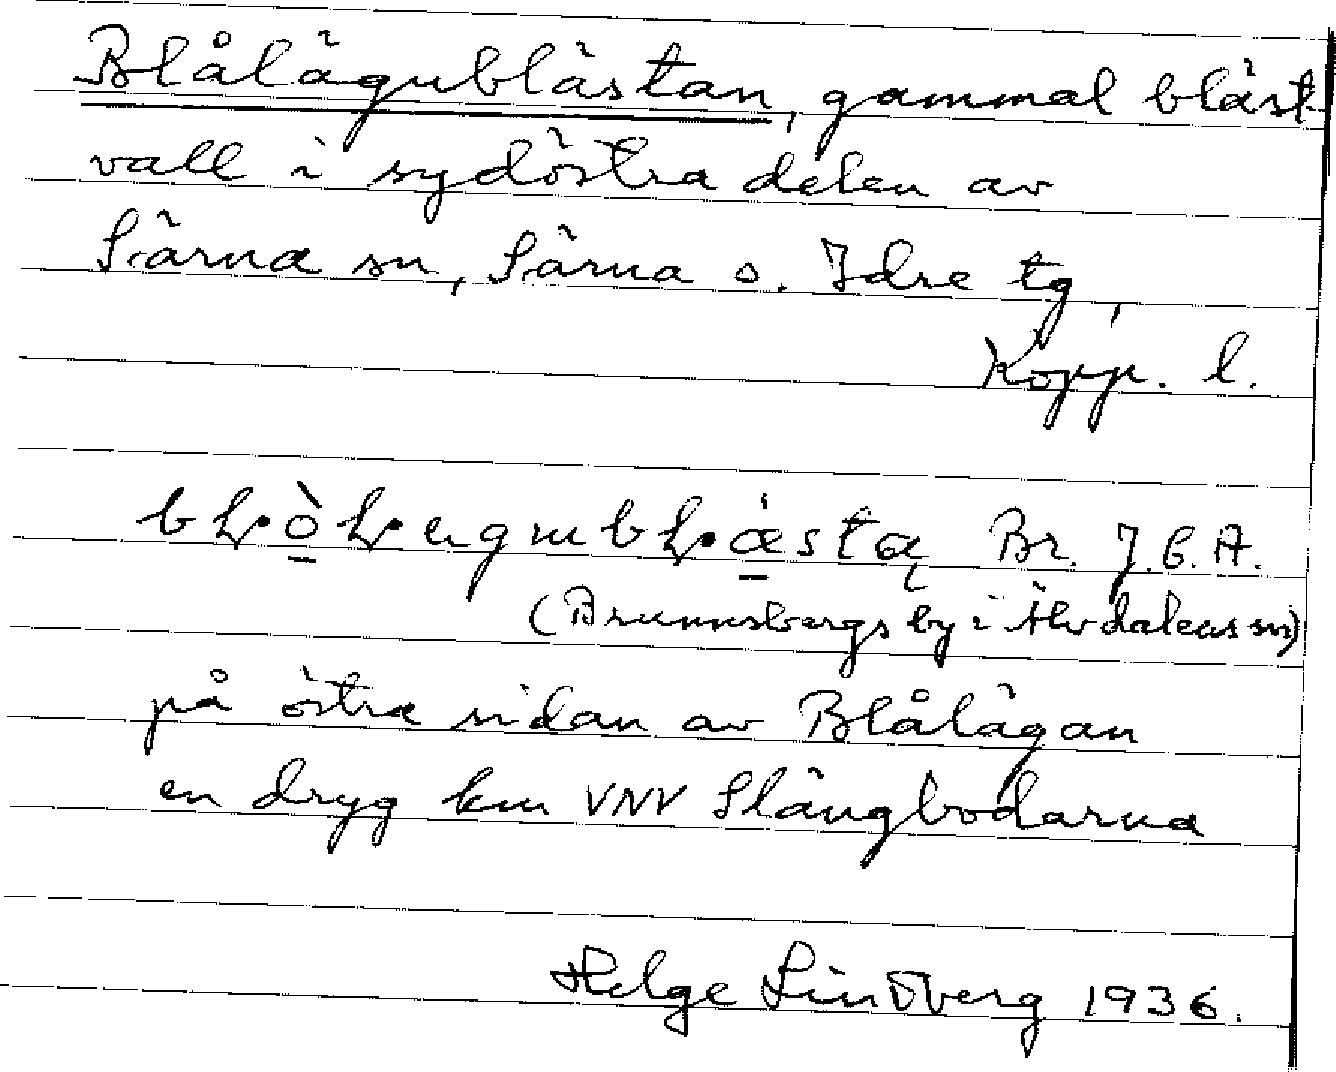 Blålägublästan, gammal bläst-
vall i sydöstra delen av
Särna sn, Särna o. Idre tg,
Kopp. l.
Br. J.E.A.
(Brunnsbergs by i Älvdalens sn)
på östra sidan av Blålägan
en dryg km VNV Slängbodarna
Helge Lindberg 1936.